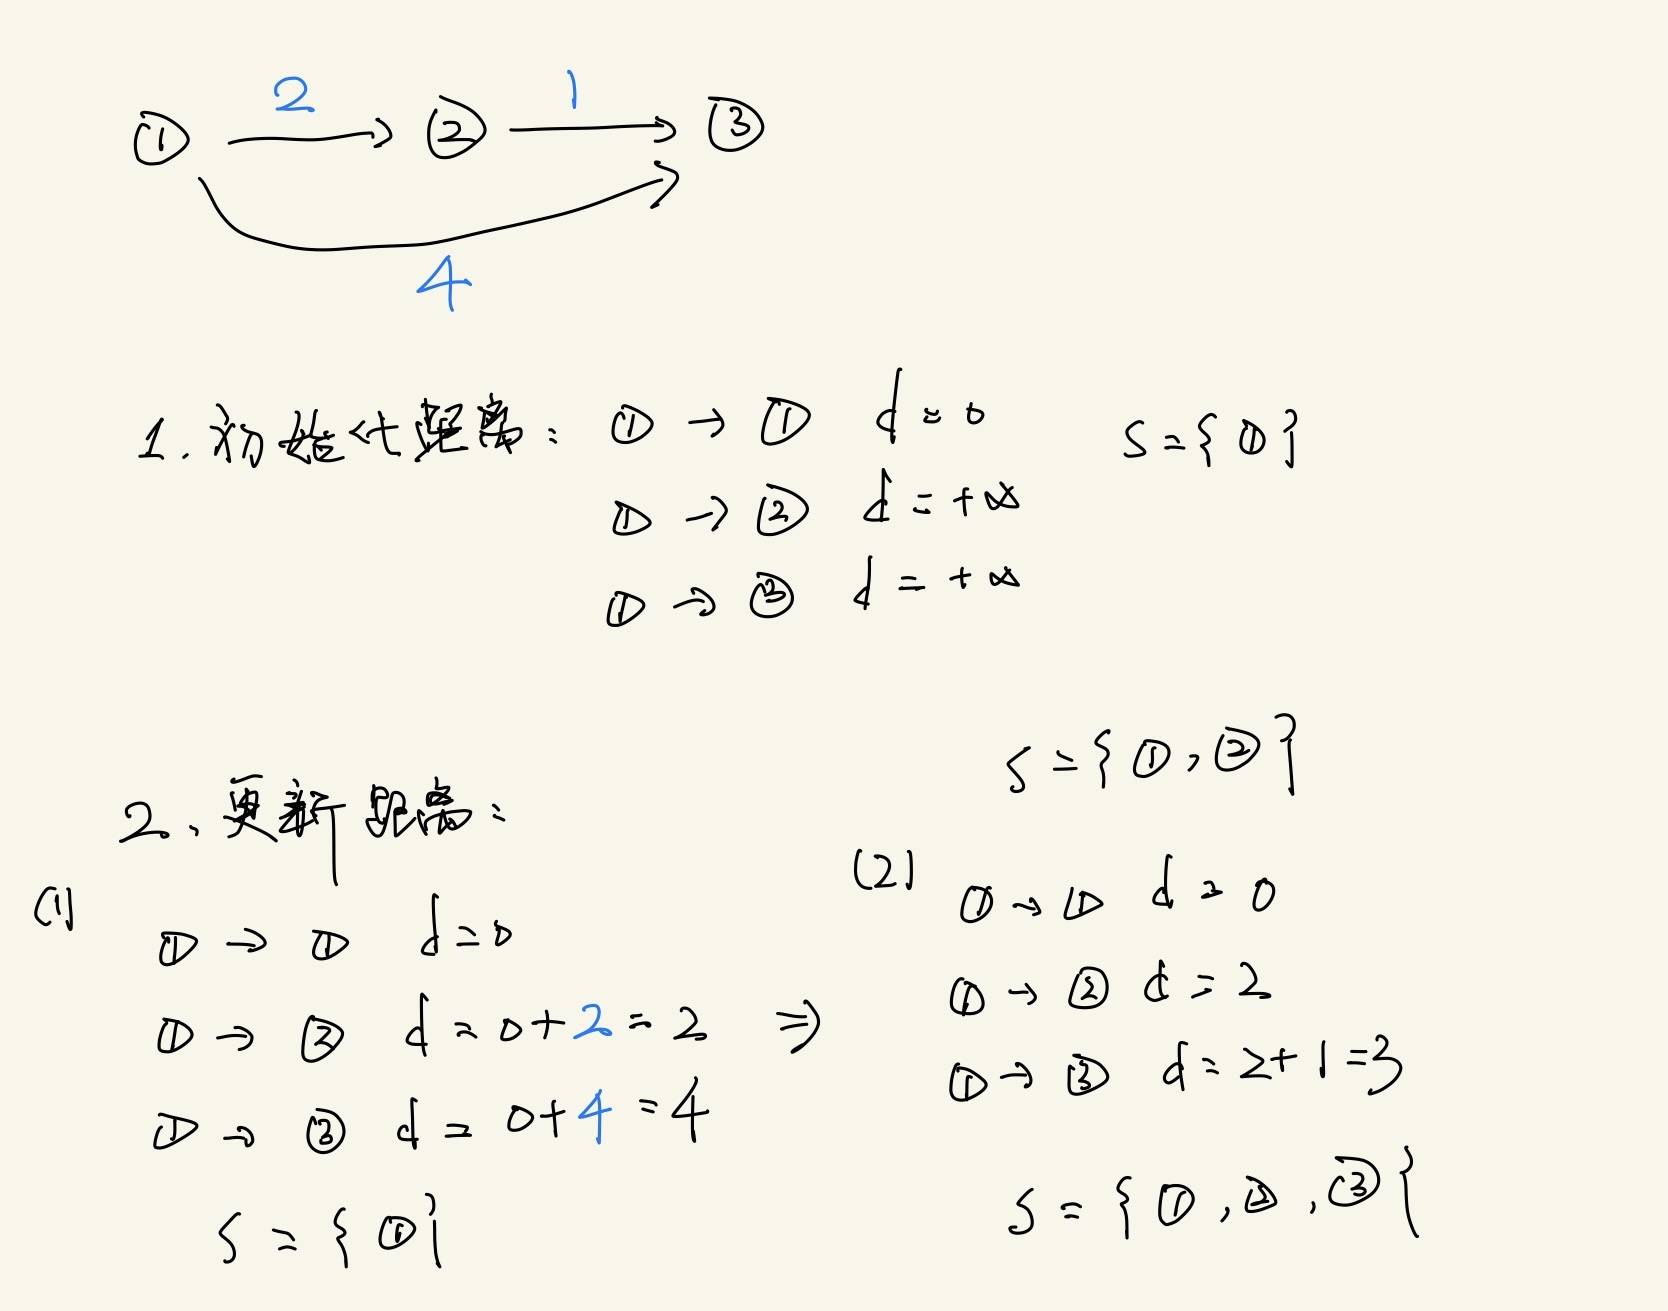 2 1
① → ② → ③
4
1. 初始化距离: ① → ① d = 0 S = { ① }
① → ② d = +∞
① → ③ d = +∞
2、更新距离:
(1)
① → ① d = 0
① → ② d = 0+2 = 2 ⇒
① → ③ d = 0+4 = 4
S = { ① }
S = { ① , ② }
(2) ① → ① d = 0
① → ② d = 2
① → ③ d = 2+1 =3
S = { ① , ② , ③ {